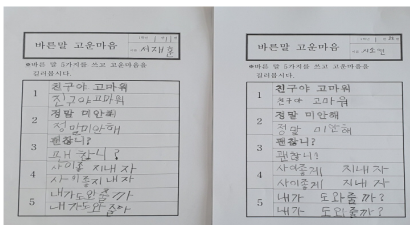 바른말 고운마음
서재훈
※바른 말 5가지를 쓰고 고운마음을
길러봅시다.
1
친구야 고마워
친구야 고마워
2
정말 미안해
정말미안해
3
괜찮니?
괜찮니?
4
사이좋 지내자
사이좋지내자
5
내가도와줄까
내가도와줄까
바른말 고운마음
※바른 말 5가지를 쓰고 고운마음을
길러봅시다.
1
친구야 고마워
친구야 고마워
2
정말 미안해
정말 미안해
3
괜찮니?
괜찮니?
4
사이좋게 지내자
사이좋게 지내자
5
내가 도와줄까?
내가 도와줄까?